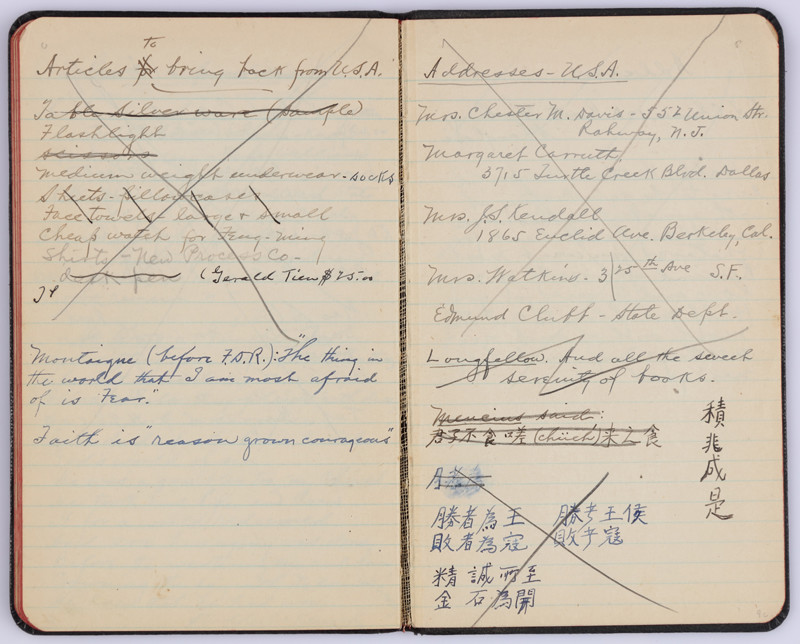 Articles to bring back from U.S.A.
Table Silver ware (sample)
Flashlight
scissors
medium weight underwear - socks
Sheets - pillowcases
Face towels - large & small
Cheap watch for Feng-ming
Shirts - New Process Co -
desk pen (Gerald Tien $25.00
Montaigne (before F.D.R.): "The thing in
the world that I am most afraid
of is Fear."
Faith is "reason grown courageous"
Addresses - U.S.A.
Mrs. Chester M. Davis - 552 Union Str.
Rahway, N.J.
Margaret Carruth
3715 Turtle Creek Blvd. Dallas
Mrs. J.S. Kendall
1865 Euclid Ave. Berkeley, Cal.
Mrs. Watkins - 3 25th Ave S.F.
Edmund Clubb - State Dept.
Longfellow. And all the sweet
serenity of books.
Mencius said:
君子不食嗟(chüeh)来之食
積非成是
勝者為王 勝者王侯
敗者為寇 敗者寇
精誠所至
金石為開